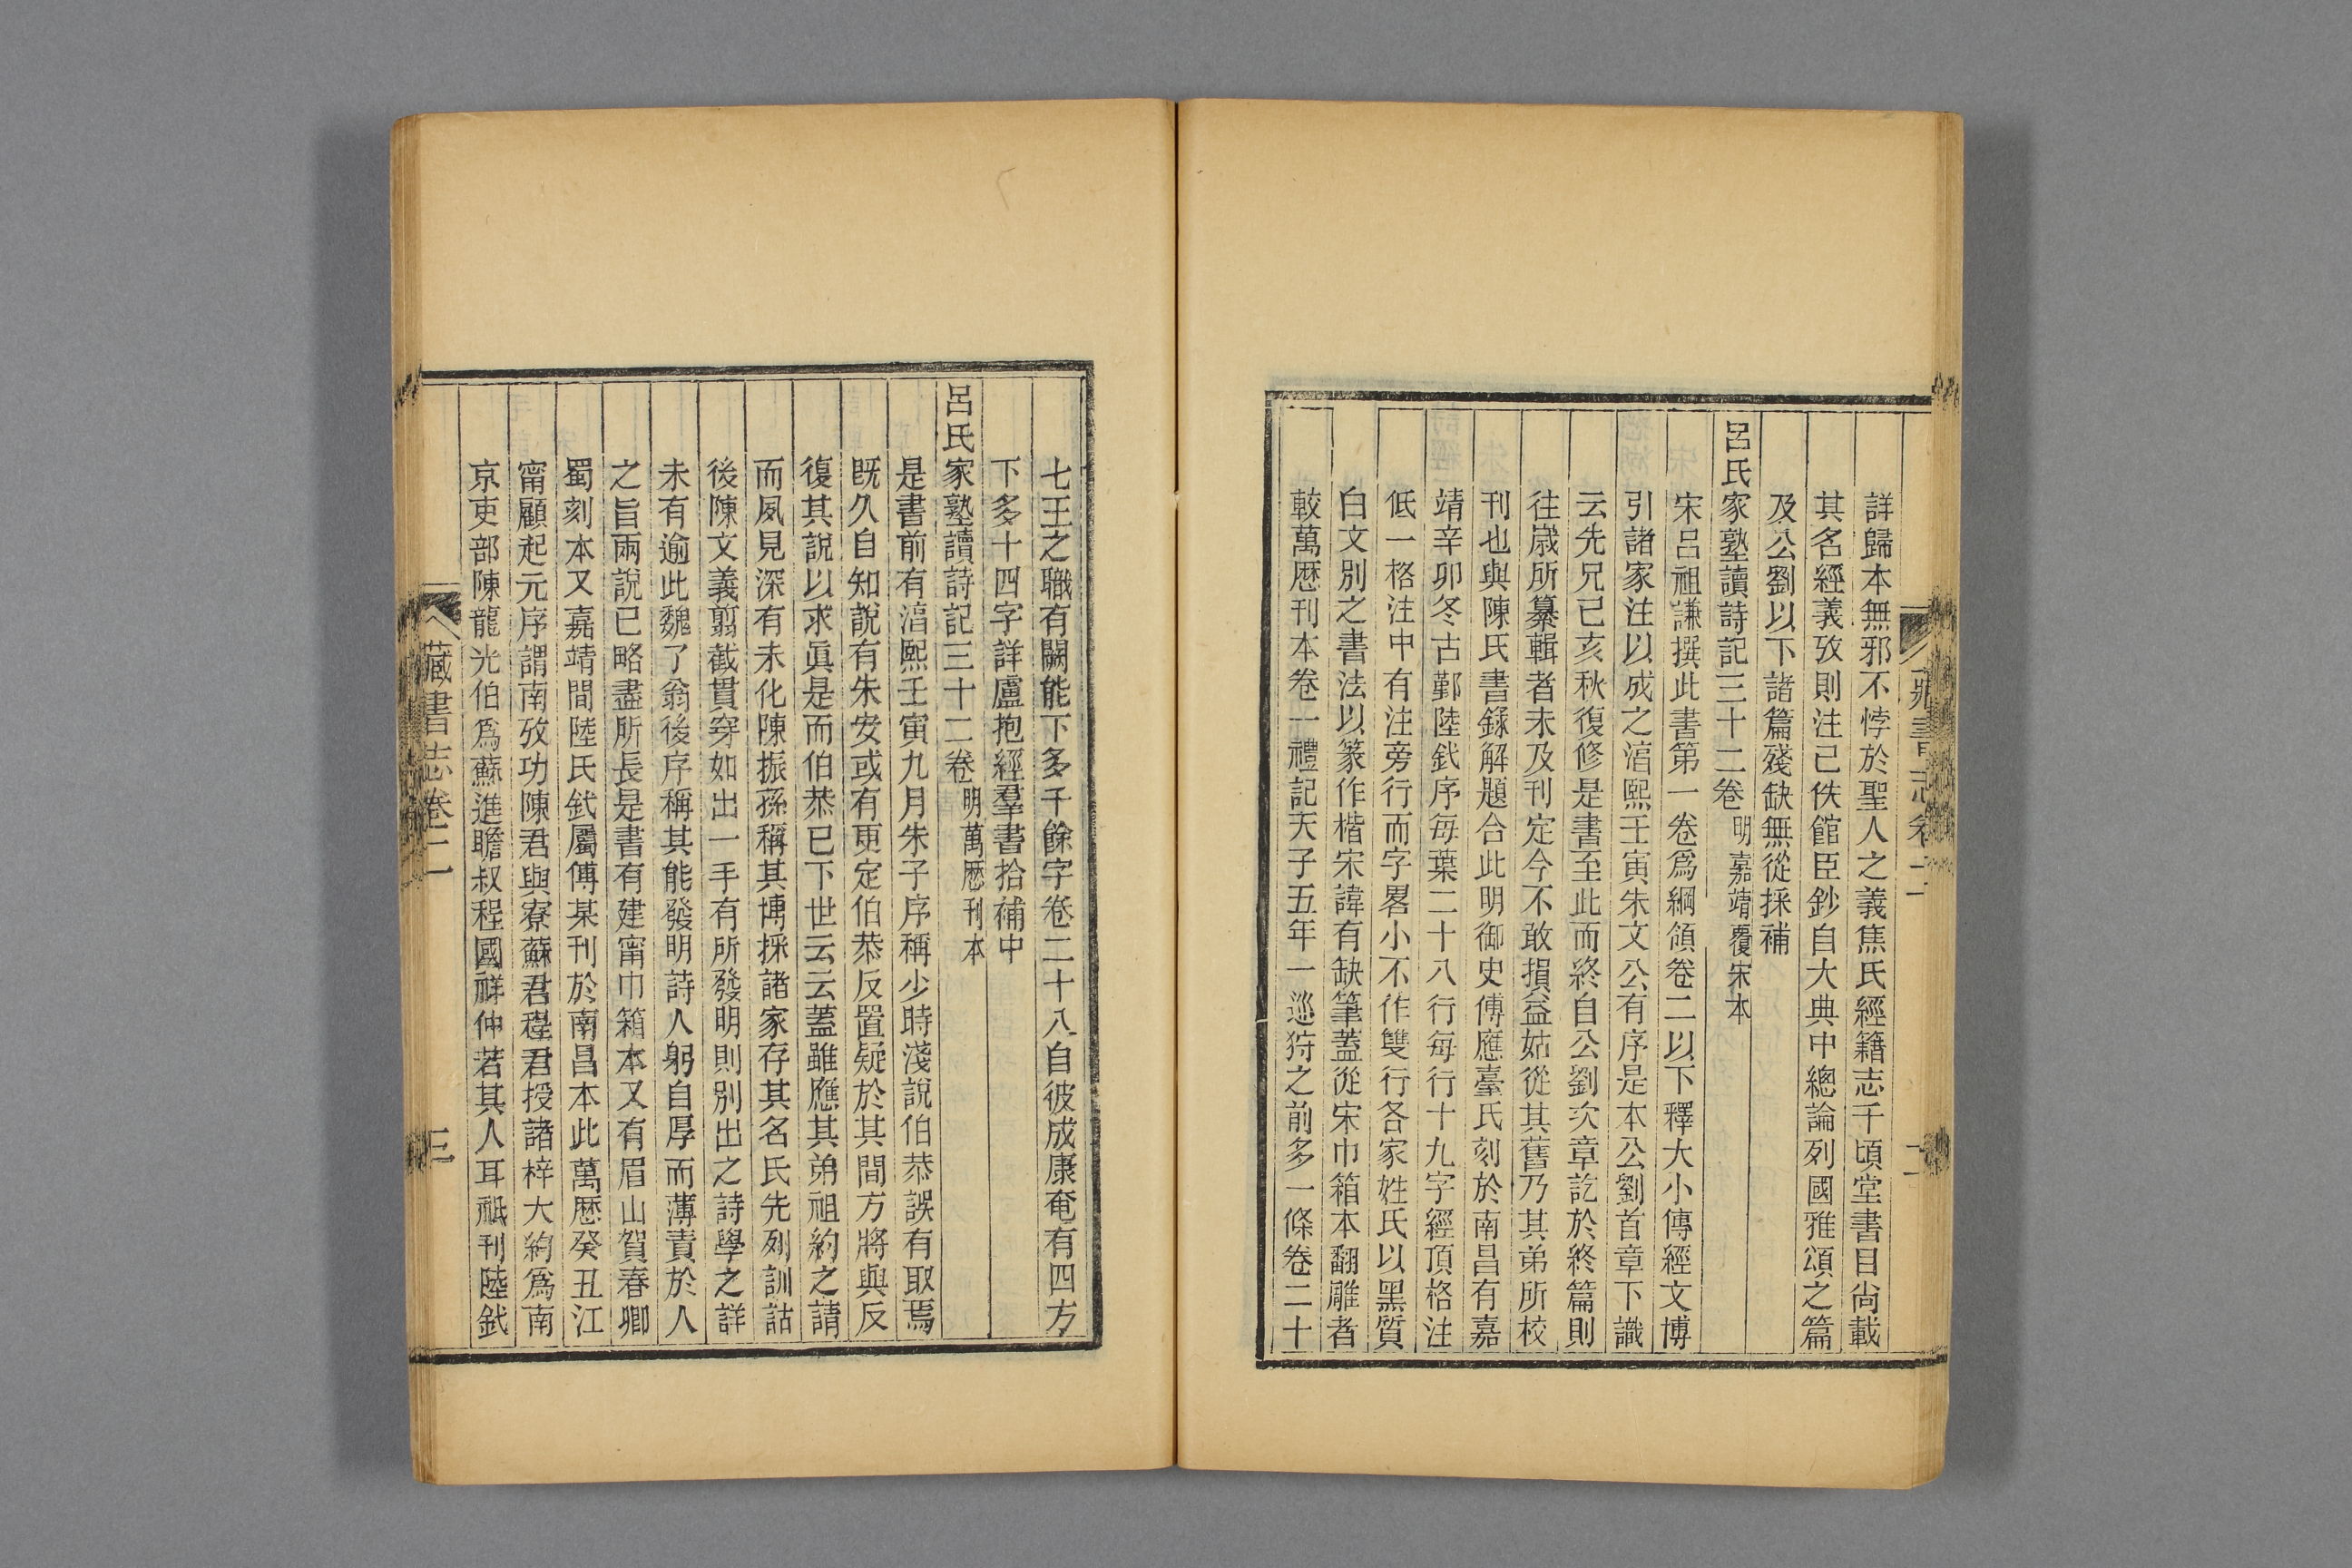 詳歸本無邪不悖於聖人之義焦氏經籍志千頃堂書目尙載
其名經義攷則注已佚館臣鈔自大典中總論列國雅頌之篇
及公劉以下諸篇殘缺無從採補
呂氏家塾讀詩記三十二卷 明嘉靖覆宋本
宋呂祖謙撰此書第一卷爲綱領卷二以下釋大小傳經文博
引諸家注以成之淳熙壬寅朱文公有序是本公劉首章下識
云先兄己亥秋復修是書至此而終自公劉次章訖於終篇則
往歲所纂輯者未及刊定今不敢損益姑從其舊乃其弟所校
刊也與陳氏書錄解題合此明御史傅應臺氏刻於南昌有嘉
靖辛卯冬古鄞陸釴序每葉二十八行每行十九字經頂格注
低一格注中有注旁行而字畧小不作雙行各家姓氏以黑質
白文別之書法以篆作楷宋諱有缺筆蓋從宋巾箱本翻雕者
較萬厯刊本卷一禮記天子五年一巡狩之前多一條卷二十
藏書志卷二
二
七王之職有闕能下多千餘字卷二十八自彼成康奄有四方
下多十四字詳盧抱經羣書拾補中
呂氏家塾讀詩記三十二卷 明萬厯刊本
是書前有淳熙壬寅九月朱子序稱少時淺說伯恭誤有取焉
旣久自知說有朱安或有更定伯恭反置疑於其間方將與反
復其說以求眞是而伯恭已下世云云蓋雖應其弟祖約之請
而夙見深有未化陳振孫稱其博採諸家存其名氏先列訓詁
後陳文義翦截貫穿如出一手有所發明則別出之詩學之詳
未有逾此魏了翁後序稱其能發明詩人躬自厚而薄責於人
之旨兩說已略盡所長是書有建甯巾箱本又有眉山賀春卿
蜀刻本又嘉靖間陸氏釴屬傅某刊於南昌本此萬厯癸丑江
甯顧起元序謂南攷功陳君與寮蘇君程君授諸梓大約爲南
京吏部陳龍光伯爲蘇進瞻叔程國祥仲若其人耳祗刊陸釴
藏書志卷二
三